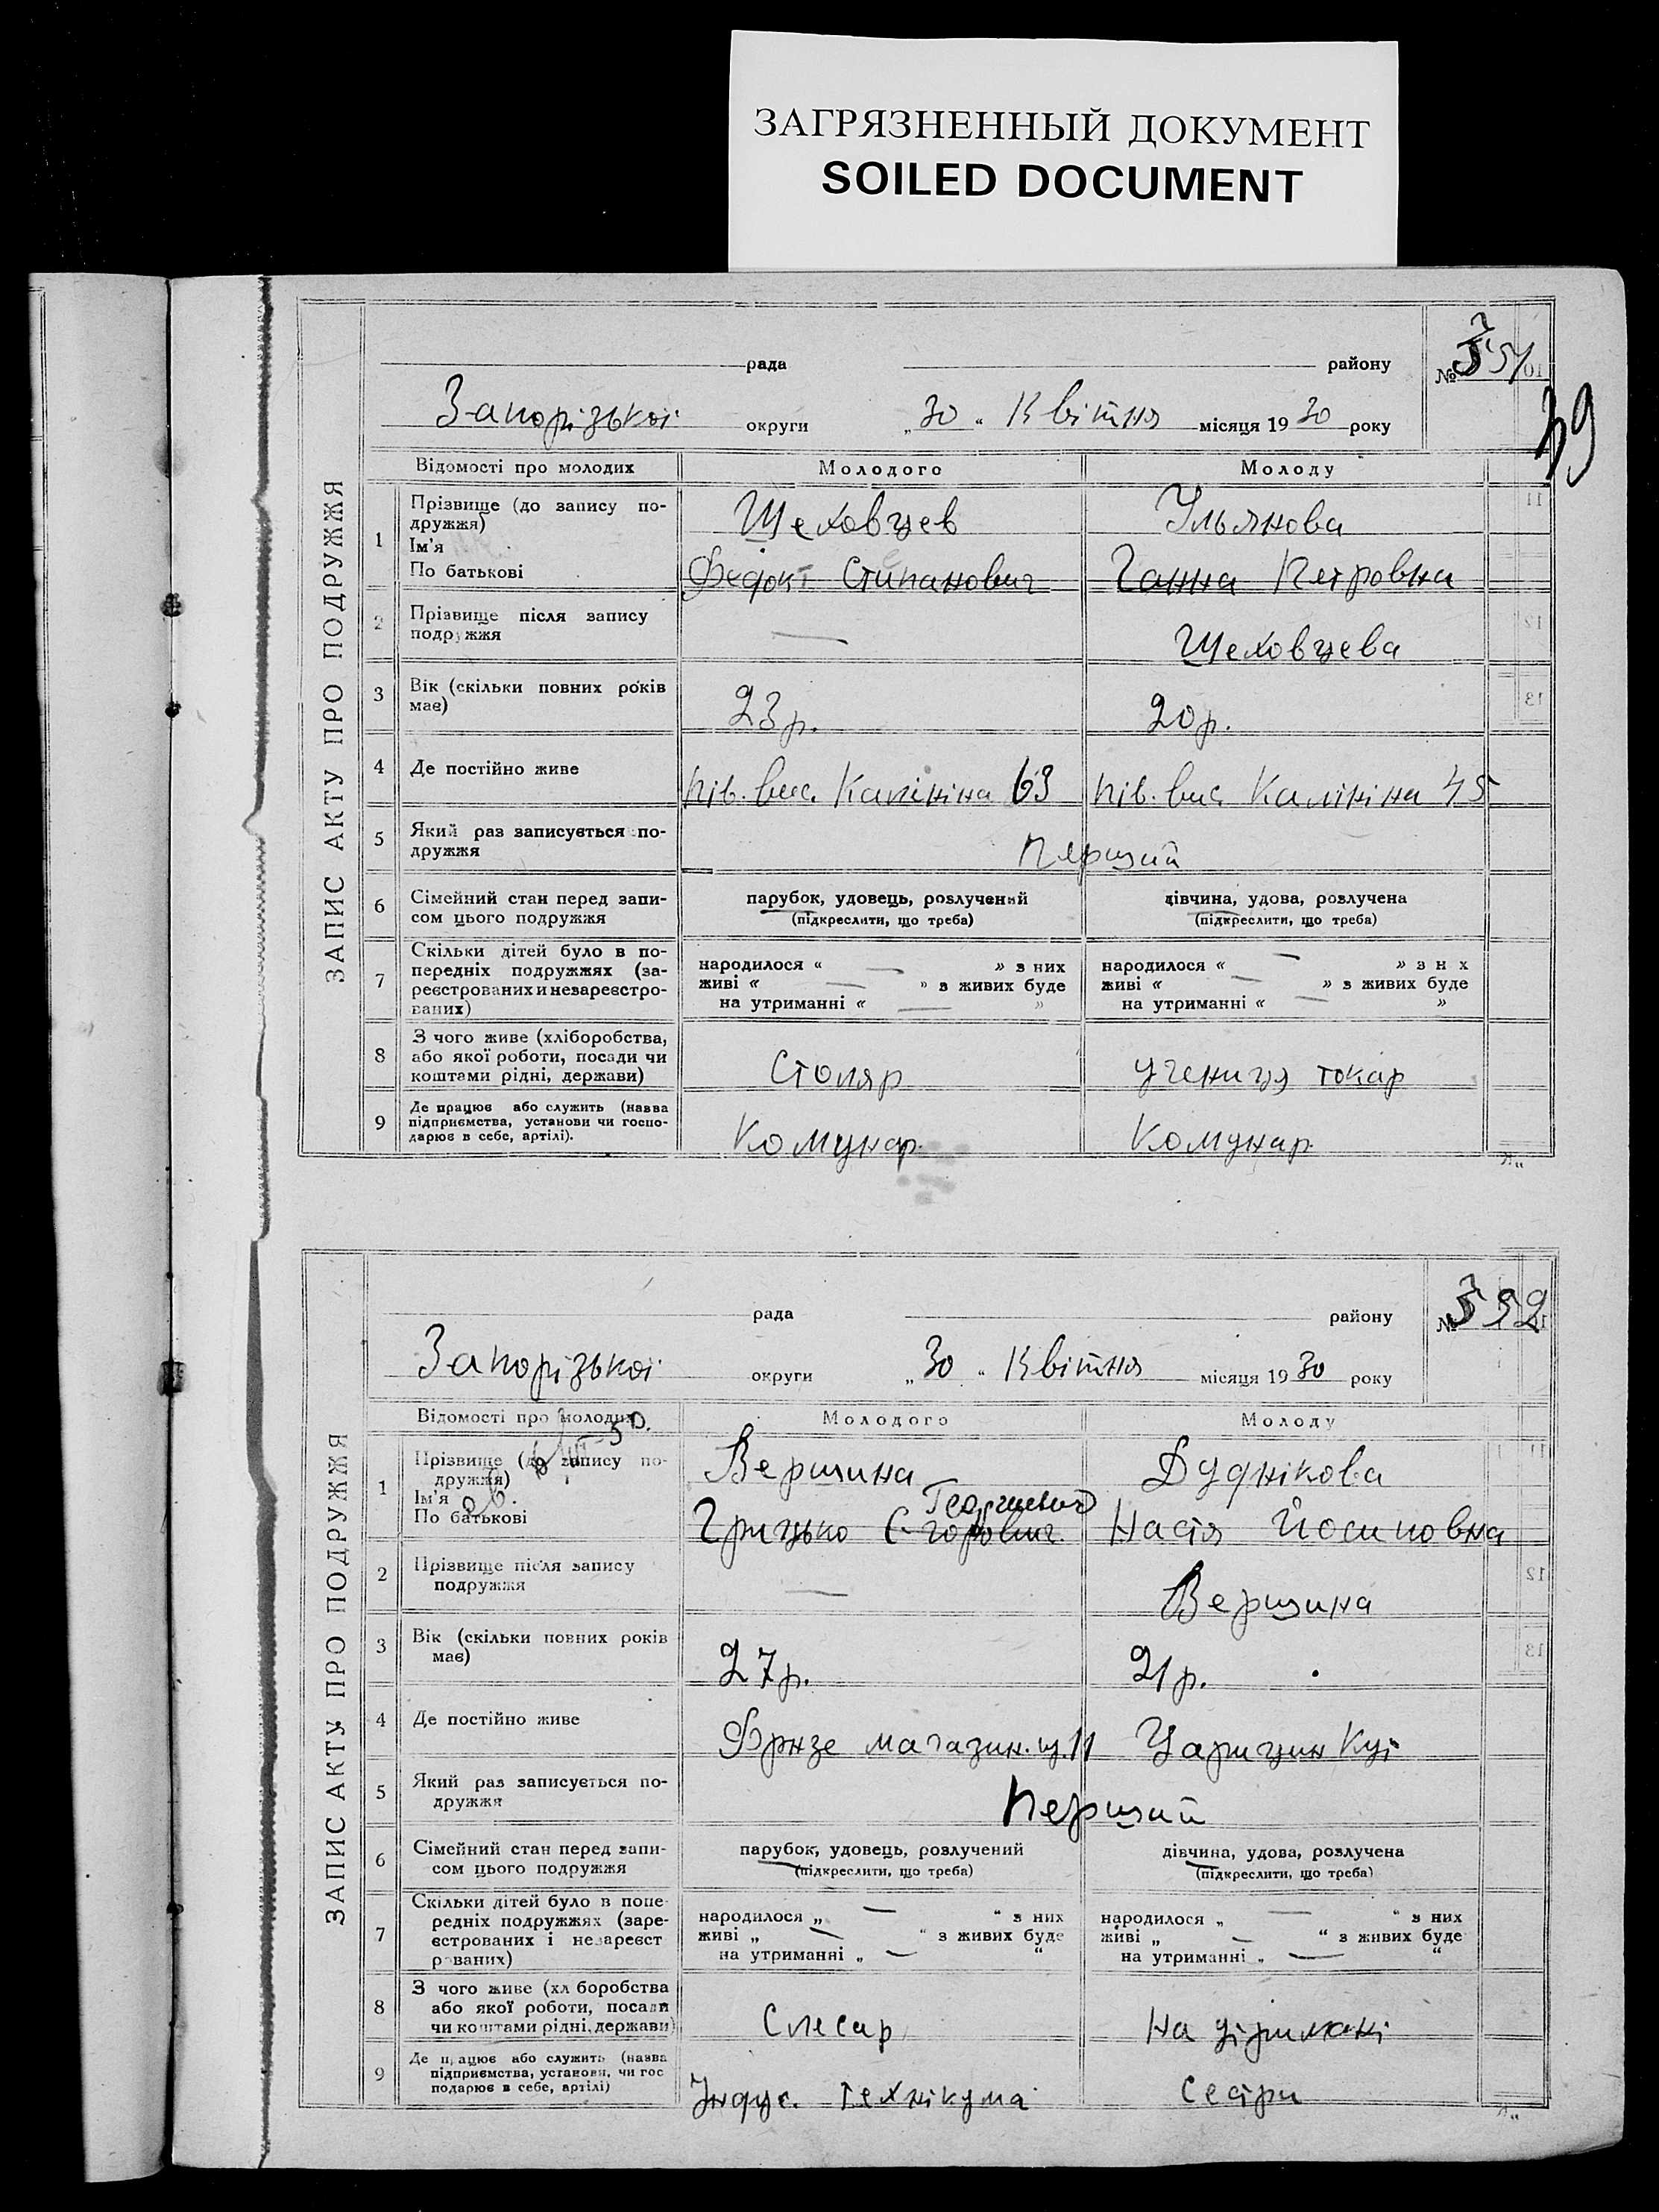 ЗАГРЯЗНЕННЫЙ ДОКУМЕНТ
SOILED DOCUMENT
ЗАПИС АКТУ ПРО ПОДРУЖЖЯ
рада району
№ 351
39
Запорізької округи „30" Квітня місяця 1930 року
Відомості про молодих Молодого Молоду
1 Прізвище (до запису по-
дружжя)
Ім'я
По батькові
Шеховцев Ульянова
Федот Степанович Ганна Петровна
2 Прізвище після запису
подружжя
— Шеховцева
3 Вік (скільки повних років
має)
23 р. 20 р.
4 Де постійно живе
Пів. вис. Калініна 63 Пів. вис. Калініна 45
5 Який раз записується по-
дружжя
Перший
6 Сімейний стан перед запи-
сом цього подружжя
парубок, удовець, розлучений дівчина, удова, розлучена
(підкреслити, що треба) (підкреслити, що треба)
7 Скільки дітей було в по-
передніх подружжях (за-
реєстрованих и незареєстро-
ваних)
народилося « — » з них народилося « — » з н х
живі « — » з живих буде живі « — » з живих буде
на утриманні « — » на утриманні « — »
8 З чого живе (хліборобства,
або якої роботи, посади чи
коштами рідні, держави)
Столяр учениця токар
9 Де працює або служить (назва
підприємства, установи чи госпо-
дарює в себе, артілі).
Комунар Комунар
ЗАПИС АКТУ ПРО ПОДРУЖЖЯ
рада району
№ 352
Запорізької округи „30" Квітня місяця 1930 року
Відомості про молодих Молодого Молоду
1 Прізвище (до запису по-
дружжя)
Ім'я
По батькові
Вершина Дуднікова
Георгиевич
Грицько Єгорович Настя Йосиповна
2 Прізвище після запису
подружжя
— Вершина
3 Вік (скільки повних років
має)
27 р. 21 р.
4 Де постійно живе
Фрнзе магазин. ц. 11 Царицин Куі
5 Який раз записується по-
дружжя
Перший
6 Сімейний стан перед запи-
сом цього подружжя
парубок, удовець, розлучений дівчина, удова, розлучена
(підкреслити, що треба) (підкреслити, що треба)
7 Скільки дітей було в попе-
редніх подружжях (заре-
єстрованих і незареєст
рованих)
народилося „ — " з них народилося „ — " з них
живі „ — " з живих буде живі „ — " з живих буде
на утриманні „ — " на утриманні „ — "
8 З чого живе (хл боробства
або якої роботи, посади
чи коштами рідні, держави)
Слесар на утриманні
9 Де працює або служить (назва
підприємства, установи, чи гос
подарює в себе, артілі)
Індус. технікума сестри